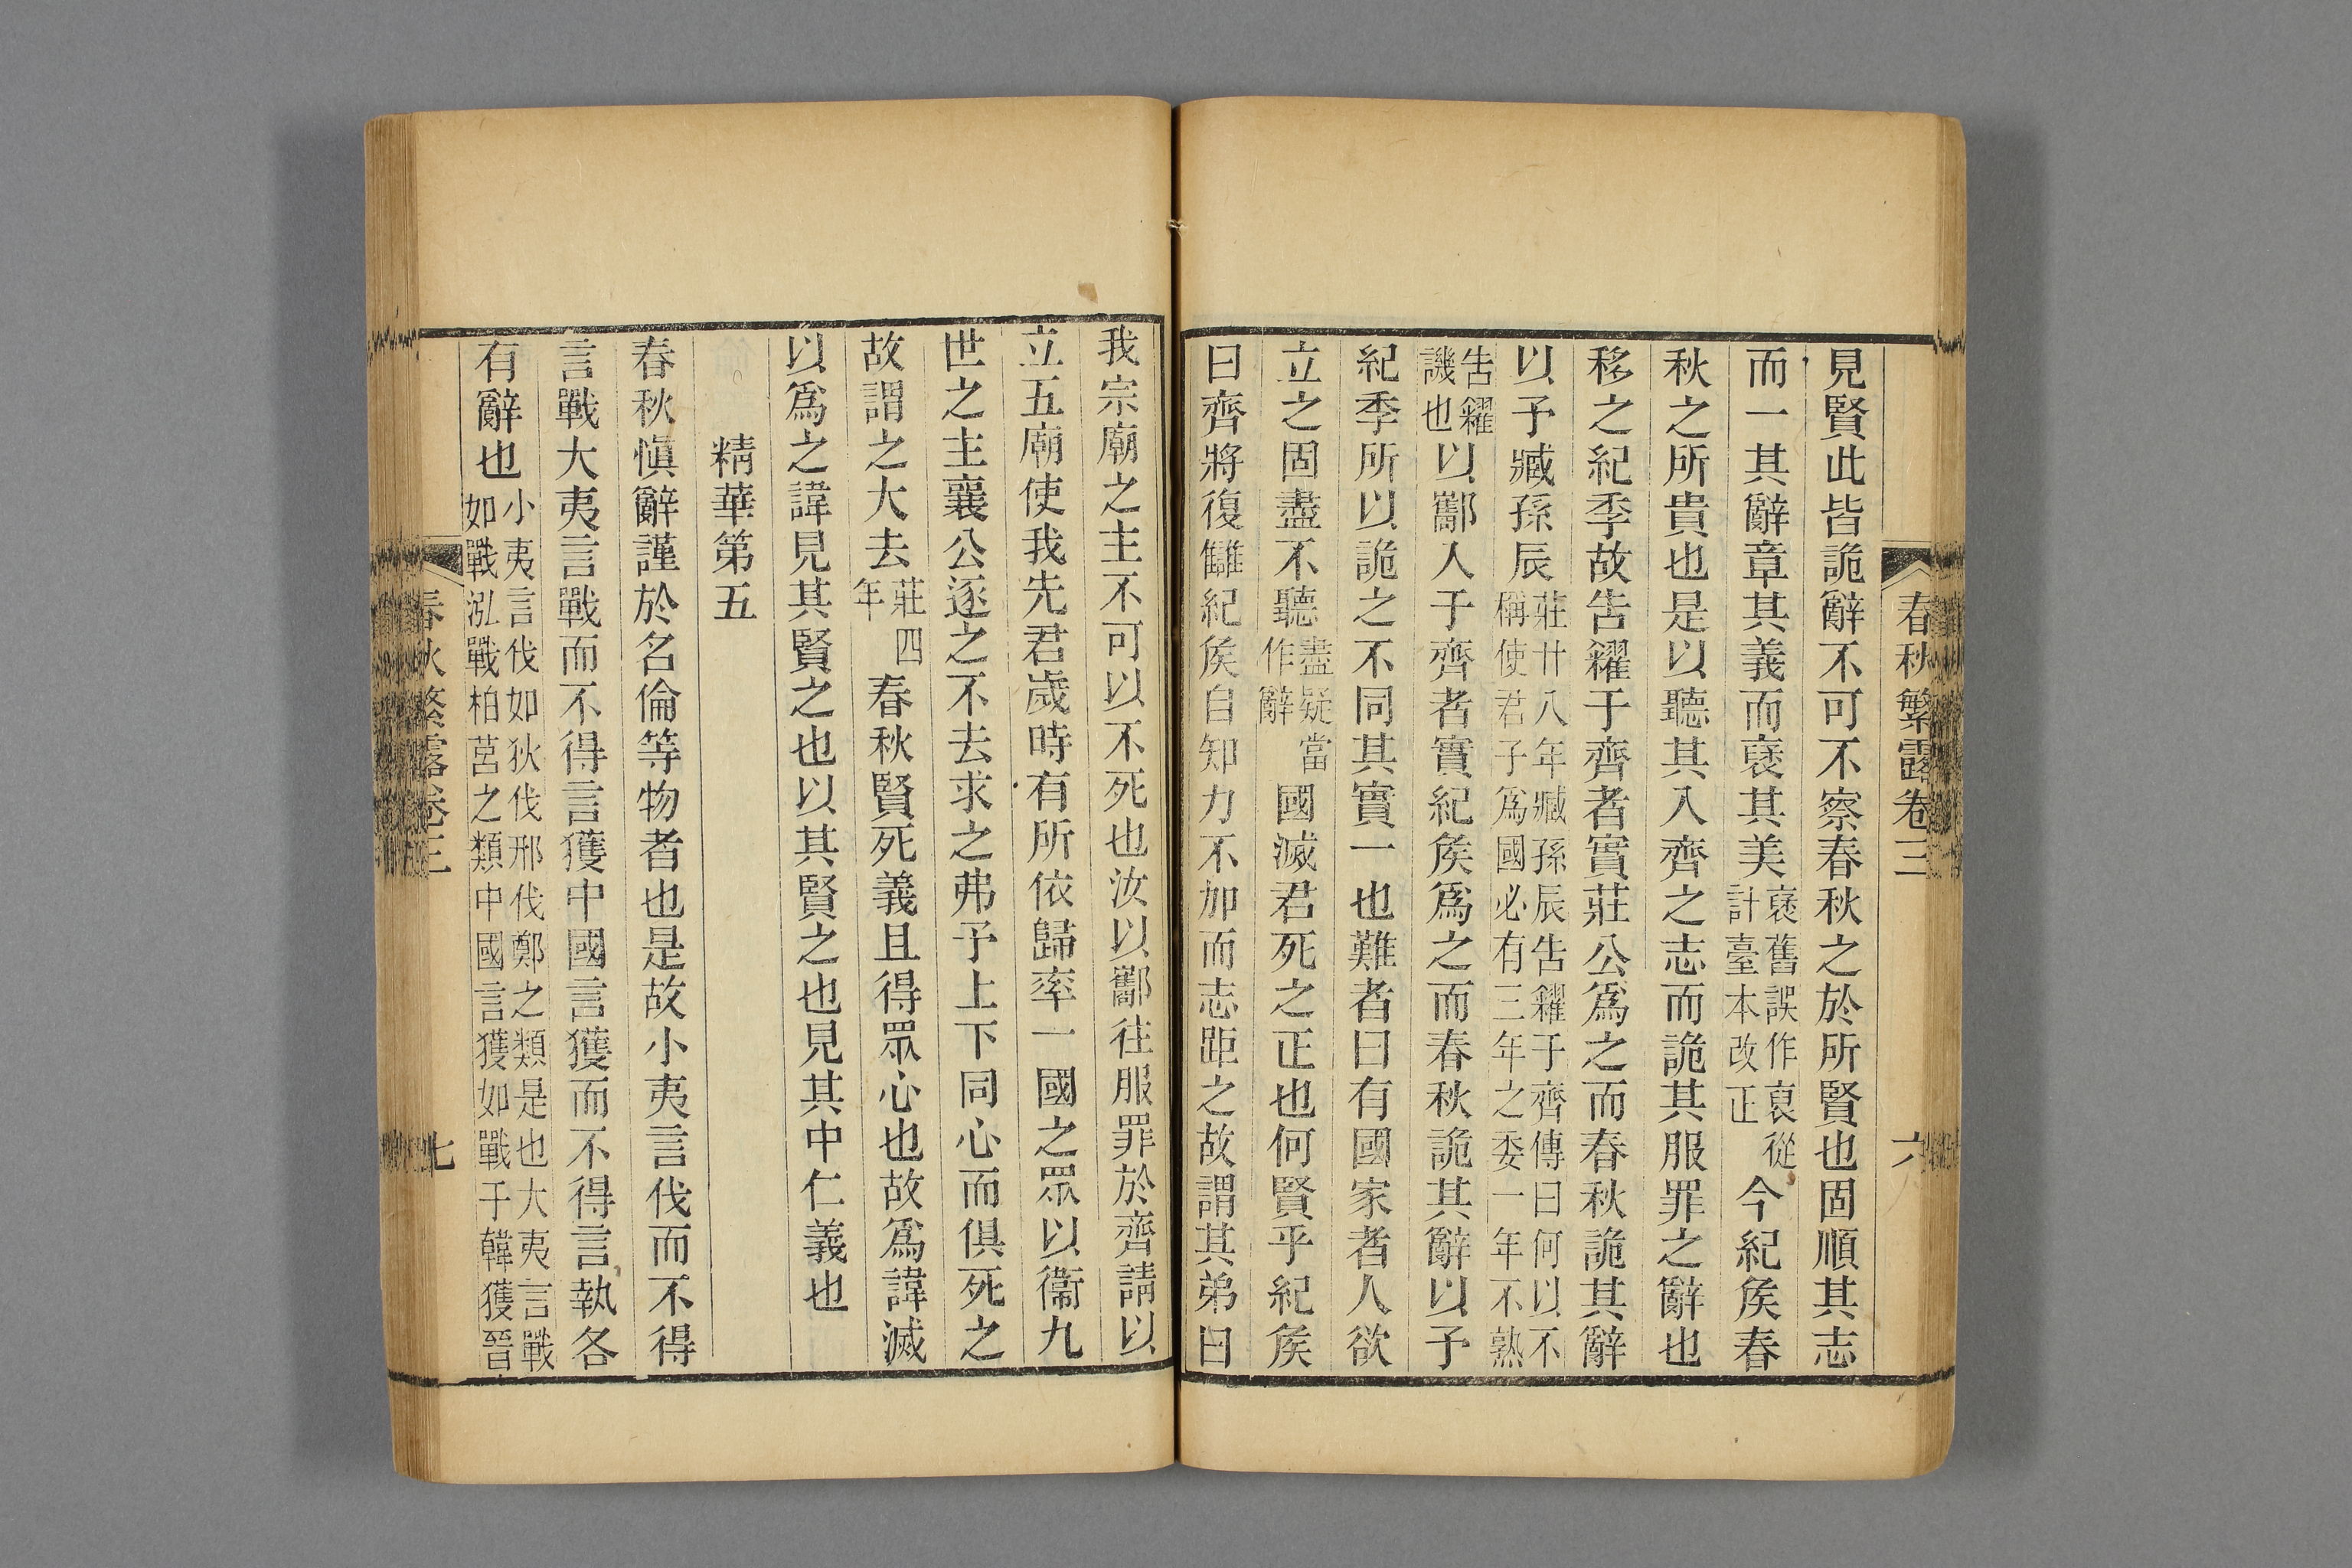 春秋繁露卷三 六
見賢此皆詭辭不可不察春秋之於所賢也固順其志
而一其辭章其義而襃其美襃舊誤作裒從計臺本改正今紀矦春
秋之所貴也是以聽其入齊之志而詭其服罪之辭也
移之紀季故告糴于齊者實莊公爲之而春秋詭其辭
以予臧孫辰莊廿八年臧孫辰告糴于齊傳曰何以不稱使君子爲國必有三年之委一年不熟
告糴譏也以酅入于齊者實紀矦爲之而春秋詭其辭以予
紀季所以詭之不同其實一也難者曰有國家者人欲
立之固盡不聽盡疑當作辭國滅君死之正也何賢乎紀矦
曰齊將復讎紀矦自知力不加而志距之故謂其弟曰
我宗廟之主不可以不死也汝以酅往服罪於齊請以
立五廟使我先君歲時有所依歸率一國之眾以衞九
世之主襄公逐之不去求之弗予上下同心而俱死之
故謂之大去莊四年春秋賢死義且得眾心也故爲諱滅
以爲之諱見其賢之也以其賢之也見其中仁義也
精華第五
春秋愼辭謹於名倫等物者也是故小夷言伐而不得
言戰大夷言戰而不得言獲中國言獲而不得言執各
有辭也小夷言伐如狄伐邢伐鄭之類是也大夷言戰如戰泓戰柏莒之類中國言獲如戰于韓獲晉
春秋繁露卷三 七